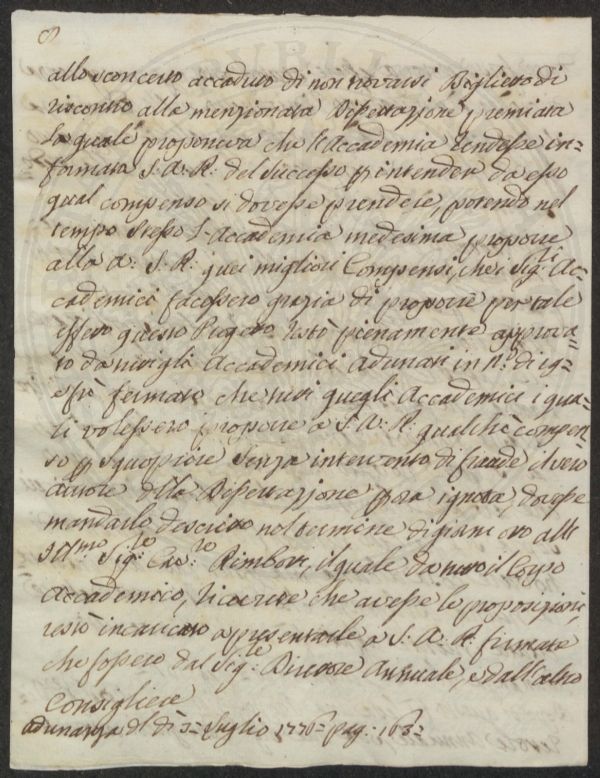 8
allo sconcerto accaduto di non trovarsi Biglietto di
riscontro alla menzionata Dissertazione premiata
la quale proponeva che l'Accademia rendesse in=
formata S. A. R. del Successo p intender da esso
qual compenso si dovesse prendere, potendo nel
tempo stesso l'Accademia medesima proporre
alla A. S. R. quei migliori Compensi, che i Sig.ri Ac=
cademici facessero grazia di proporre per tale
effetto questo Progetto restò pienamente approva=
to da tutti gli Accademici adunati in n.º di 19=
e fù fermato che tutti quegli Accademici i qua=
li volessero proporre a S. A. R. qualche compen=
so p iscuoprire senza intervento di fraude il vero
autore della Dissertazione p ora ignota, dovesse
mandarlo descritto nel termine di giorni otto all'
Ill.mo Sig.re Cav.re Rimbotti, il quale da tutto il Corpo
Accademico, ricevute che avesse le proposizioni,
restò incaricato appresentarle a S. A. R. firmate
che fossero dal Sig.re Direttore Annuale, e dall'altro
Consigliere
adunanza del dì 3 Luglio 1776 pag. 163